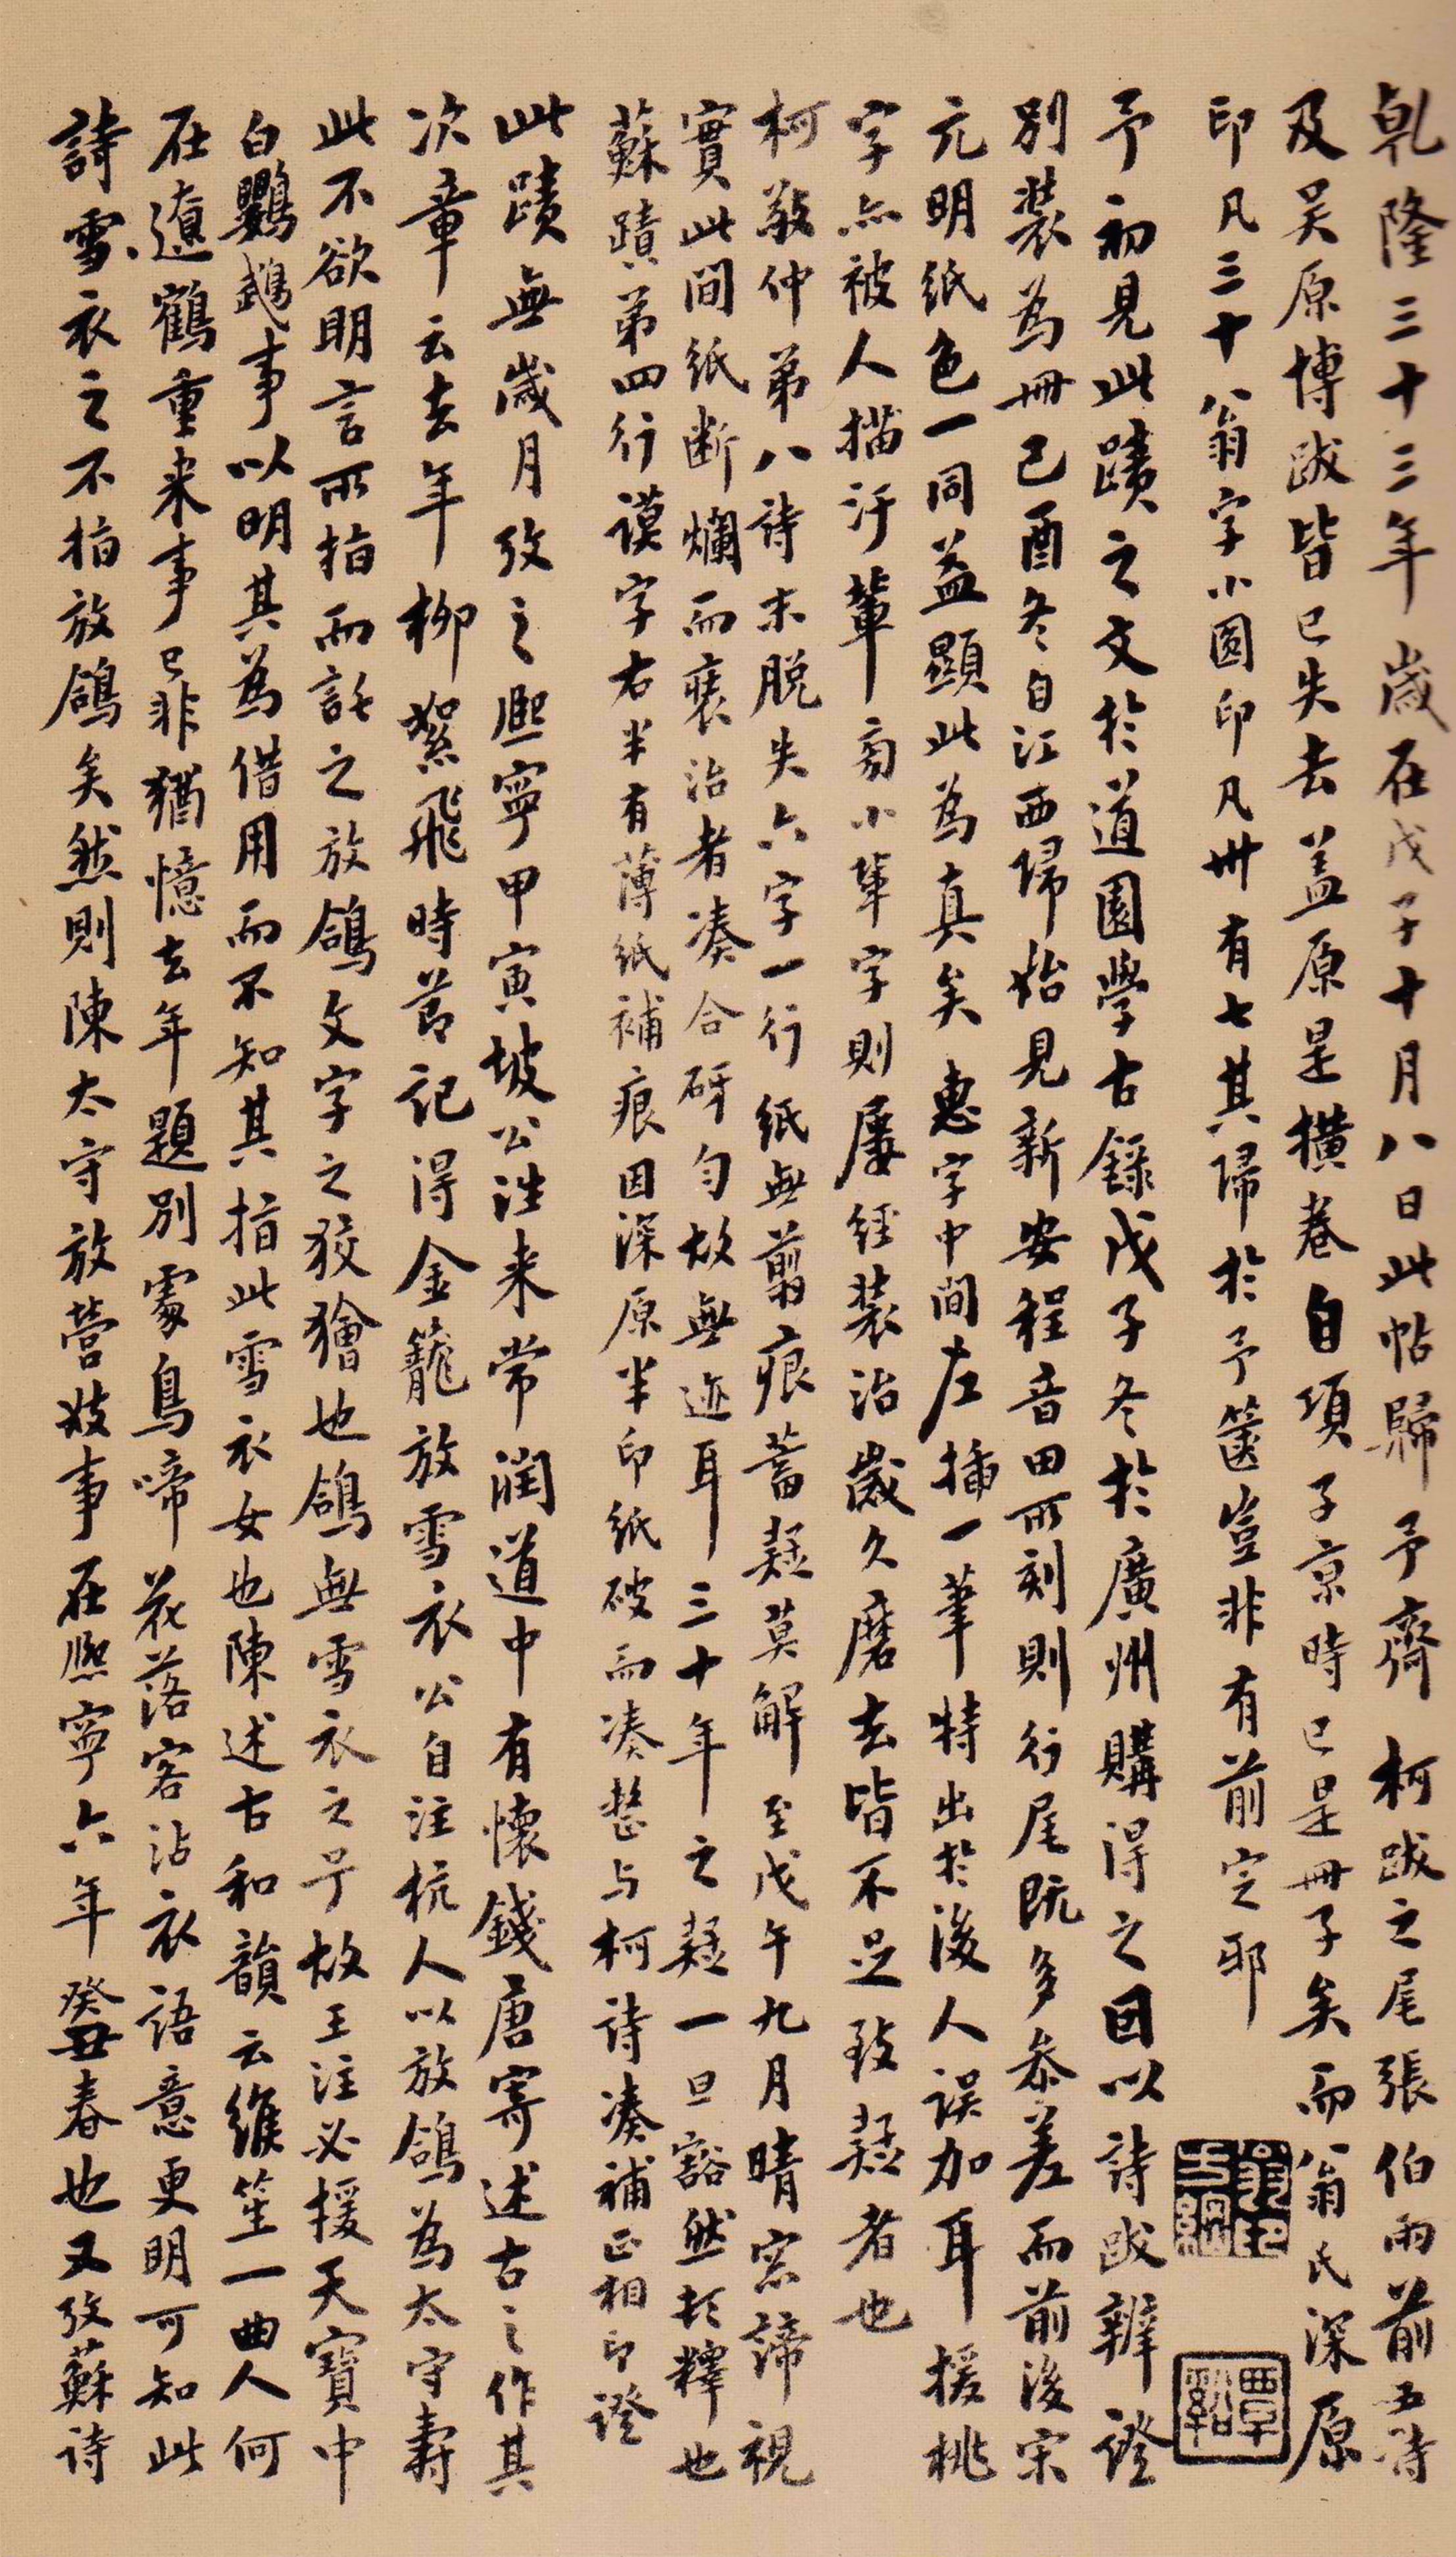 乹隆三十三年歲在戊子十月八日此帖歸予齋柯跋之尾張伯雨前五詩
及吴原博跋皆已失去盖原是橫卷自項子京時已是冊子矣而翁氏深原
印凡三十八翁字小圓印凡卅有七其歸於予篋豈非有前定耶
予初見此蹟之文於道園學古錄戊子冬於廣州購得之因以詩跋辨證
別裝為冊己酉冬自江西歸始見新安程音田所刻則行尾既多參差而前後宋
元明紙色一同益顯此為真矣惠字中間左插一筆特出於後人誤加耳援桃
字亦被人描汙葷旁小葷字則屢經裝治歲久磨去皆不足致疑者也
柯敬仲弟八詩末脱失六字一行紙無翦痕蓄疑莫解至戊午九月晴窓諦視
實此間紙断爛而裱治者湊合砑勻故無迹耳三十年之疑一旦豁然於釋也
蘇蹟弟四行謨字右半有薄紙補痕因深原半印紙破而湊整与柯詩湊補正相印證
此蹟無歲月攷之熙寧甲寅坡公往来常润道中有懷錢唐寄述古之作其
次章云去年柳絮飛時節記得金籠放雪衣公自注杭人以放鴿為太守壽
此不欲明言所指而託之放鴿文字之狡獪也鴿無雪衣之号故王注必援天寶中
白鸚鵡事以明其為借用而不知其指此雪衣女也陳述古和韻云緱笙一曲人何
在遼鶴重来事已非猶憶去年題別處鳥啼花落客沾衣語意更明可知此
詩雪衣之不指放鴿矣然則陳太守放營妓事在熙寧六年癸丑春也又攷蘇詩
翁方綱
覃谿